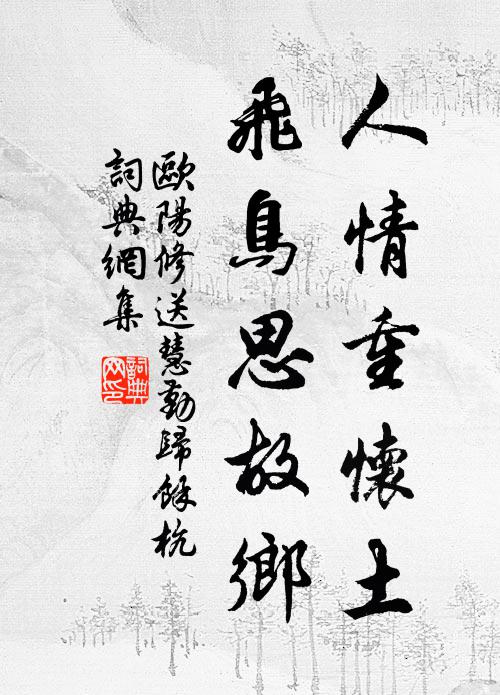 人情重懷土
飛鳥思故鄉
歐陽修送慧勤歸餘杭
詞典網集
詞典網印